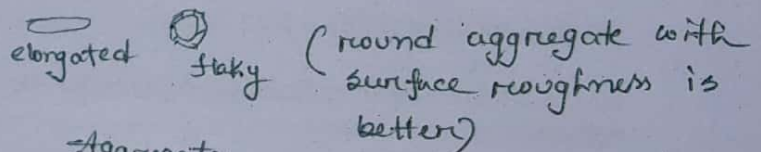 elongated flaky (round aggregate with
surface roughness is
better)